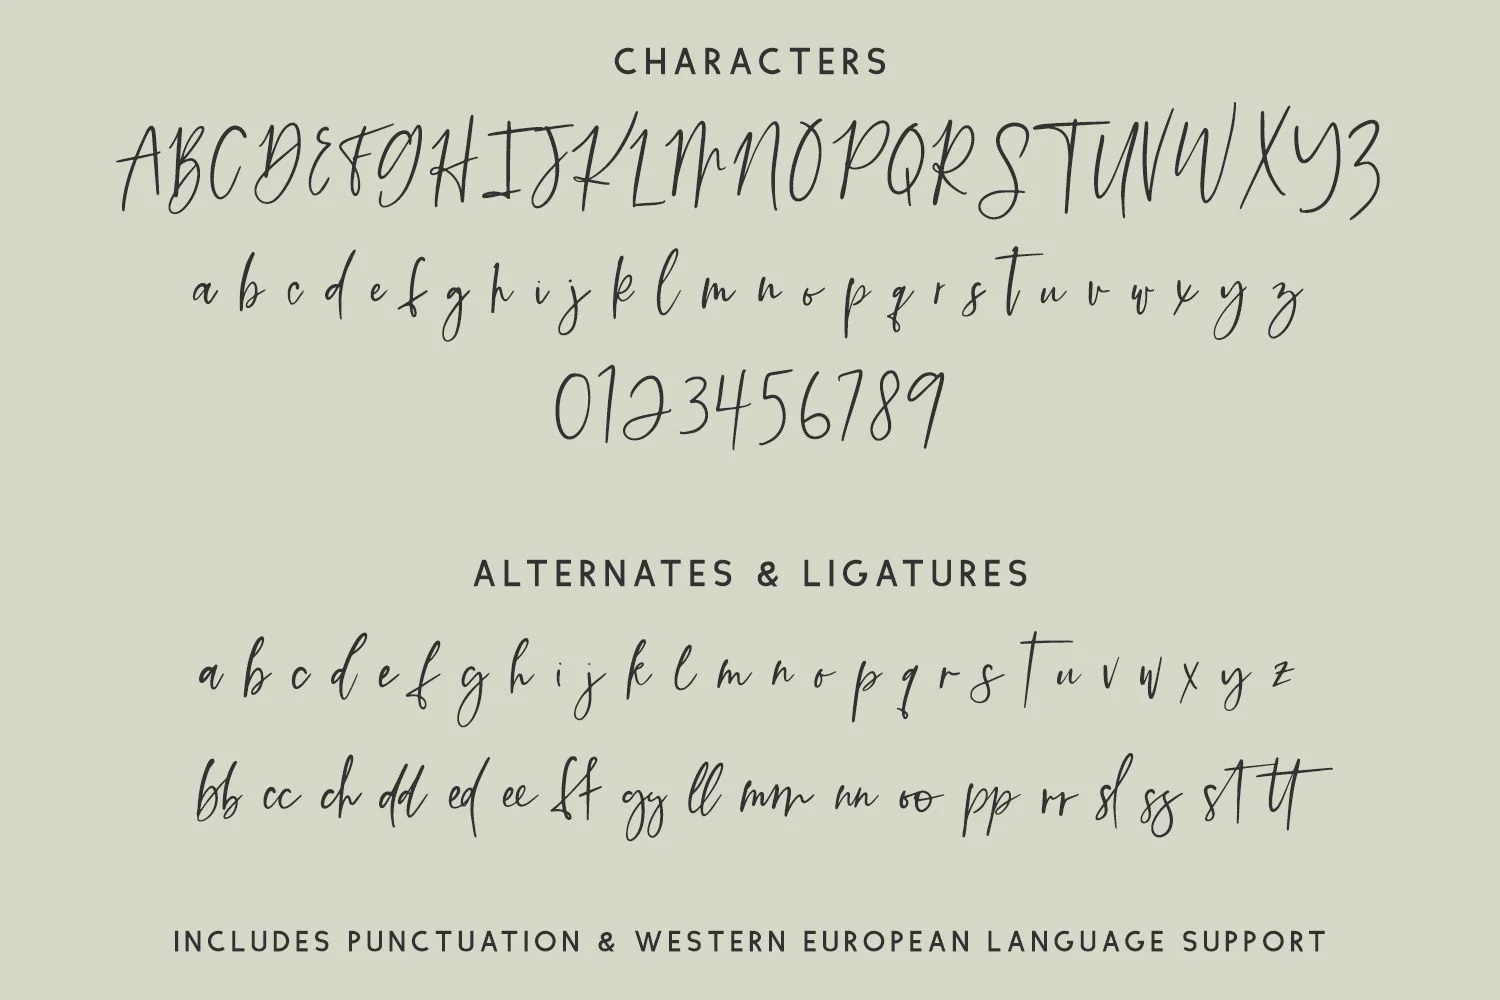 CHARACTERS
ABCDEFGHIJKLMNOPQRSTUVWXYZ
a b c d e f g h i j k l m n o p q r s t u v w x y z
0123456789
ALTERNATES & LIGATURES
a b c d e f g h i j k l m n o p q r s t u v w x y z
bb cc ch dd ed ee ff gy ll mm nn oo pp rr sl ss st tt
INCLUDES PUNCTUATION & WESTERN EUROPEAN LANGUAGE SUPPORT